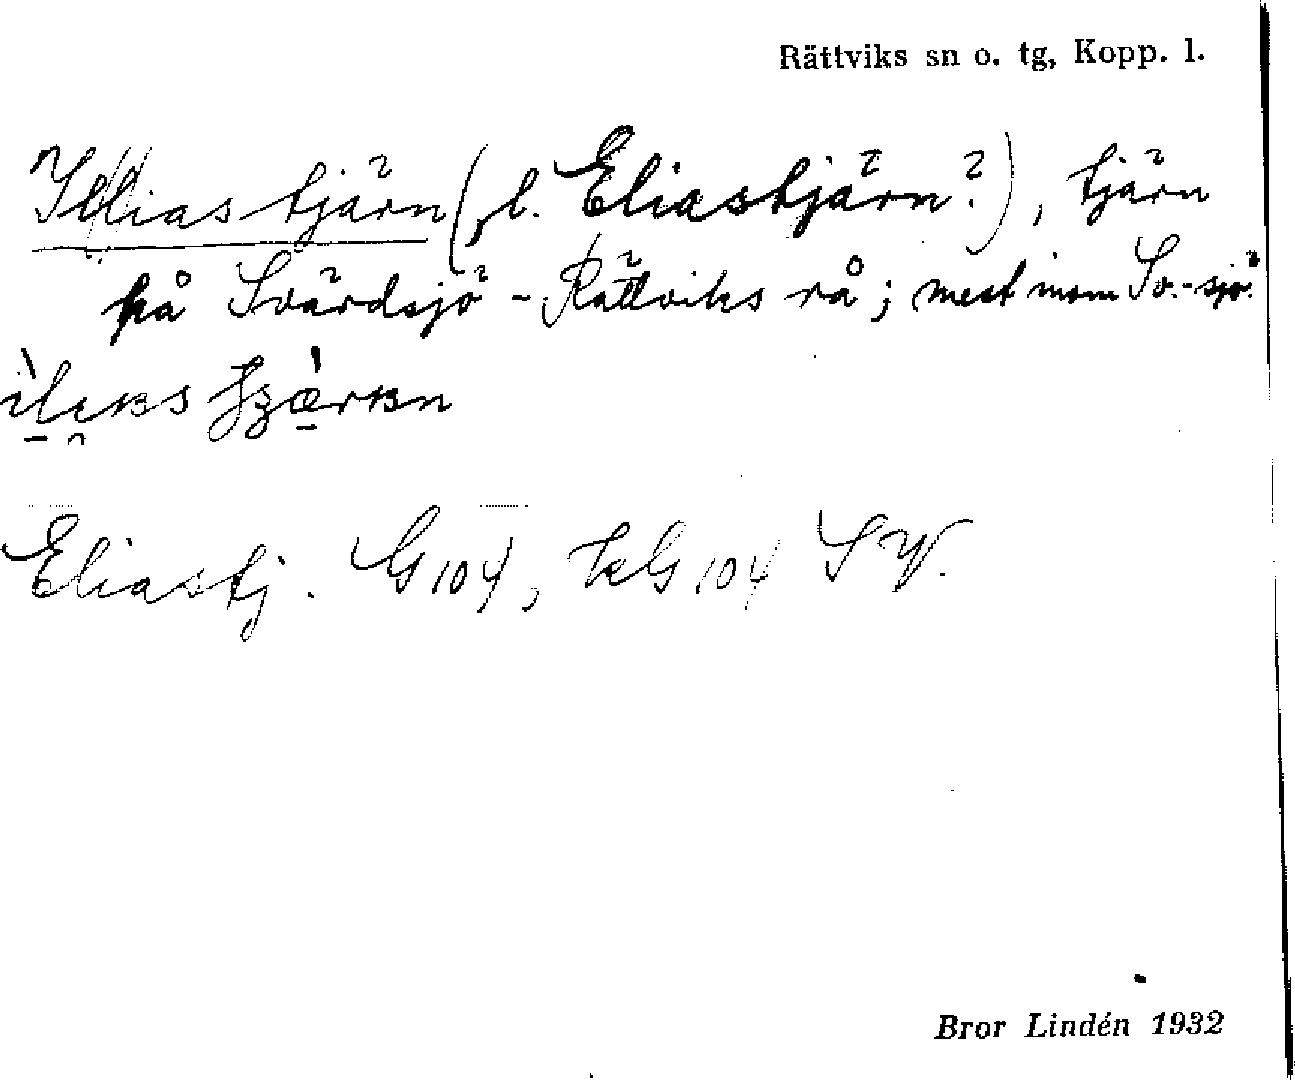 Rättviks sn o. tg, Kopp. l.
Iliastjärn (l. Eliastjärn?), tjärn
på Svärdsjö - Rättviks rå; mest inom Sv.-sjö.
Eliastj. G 104, kG 104 SV.
Bror Lindén 1932